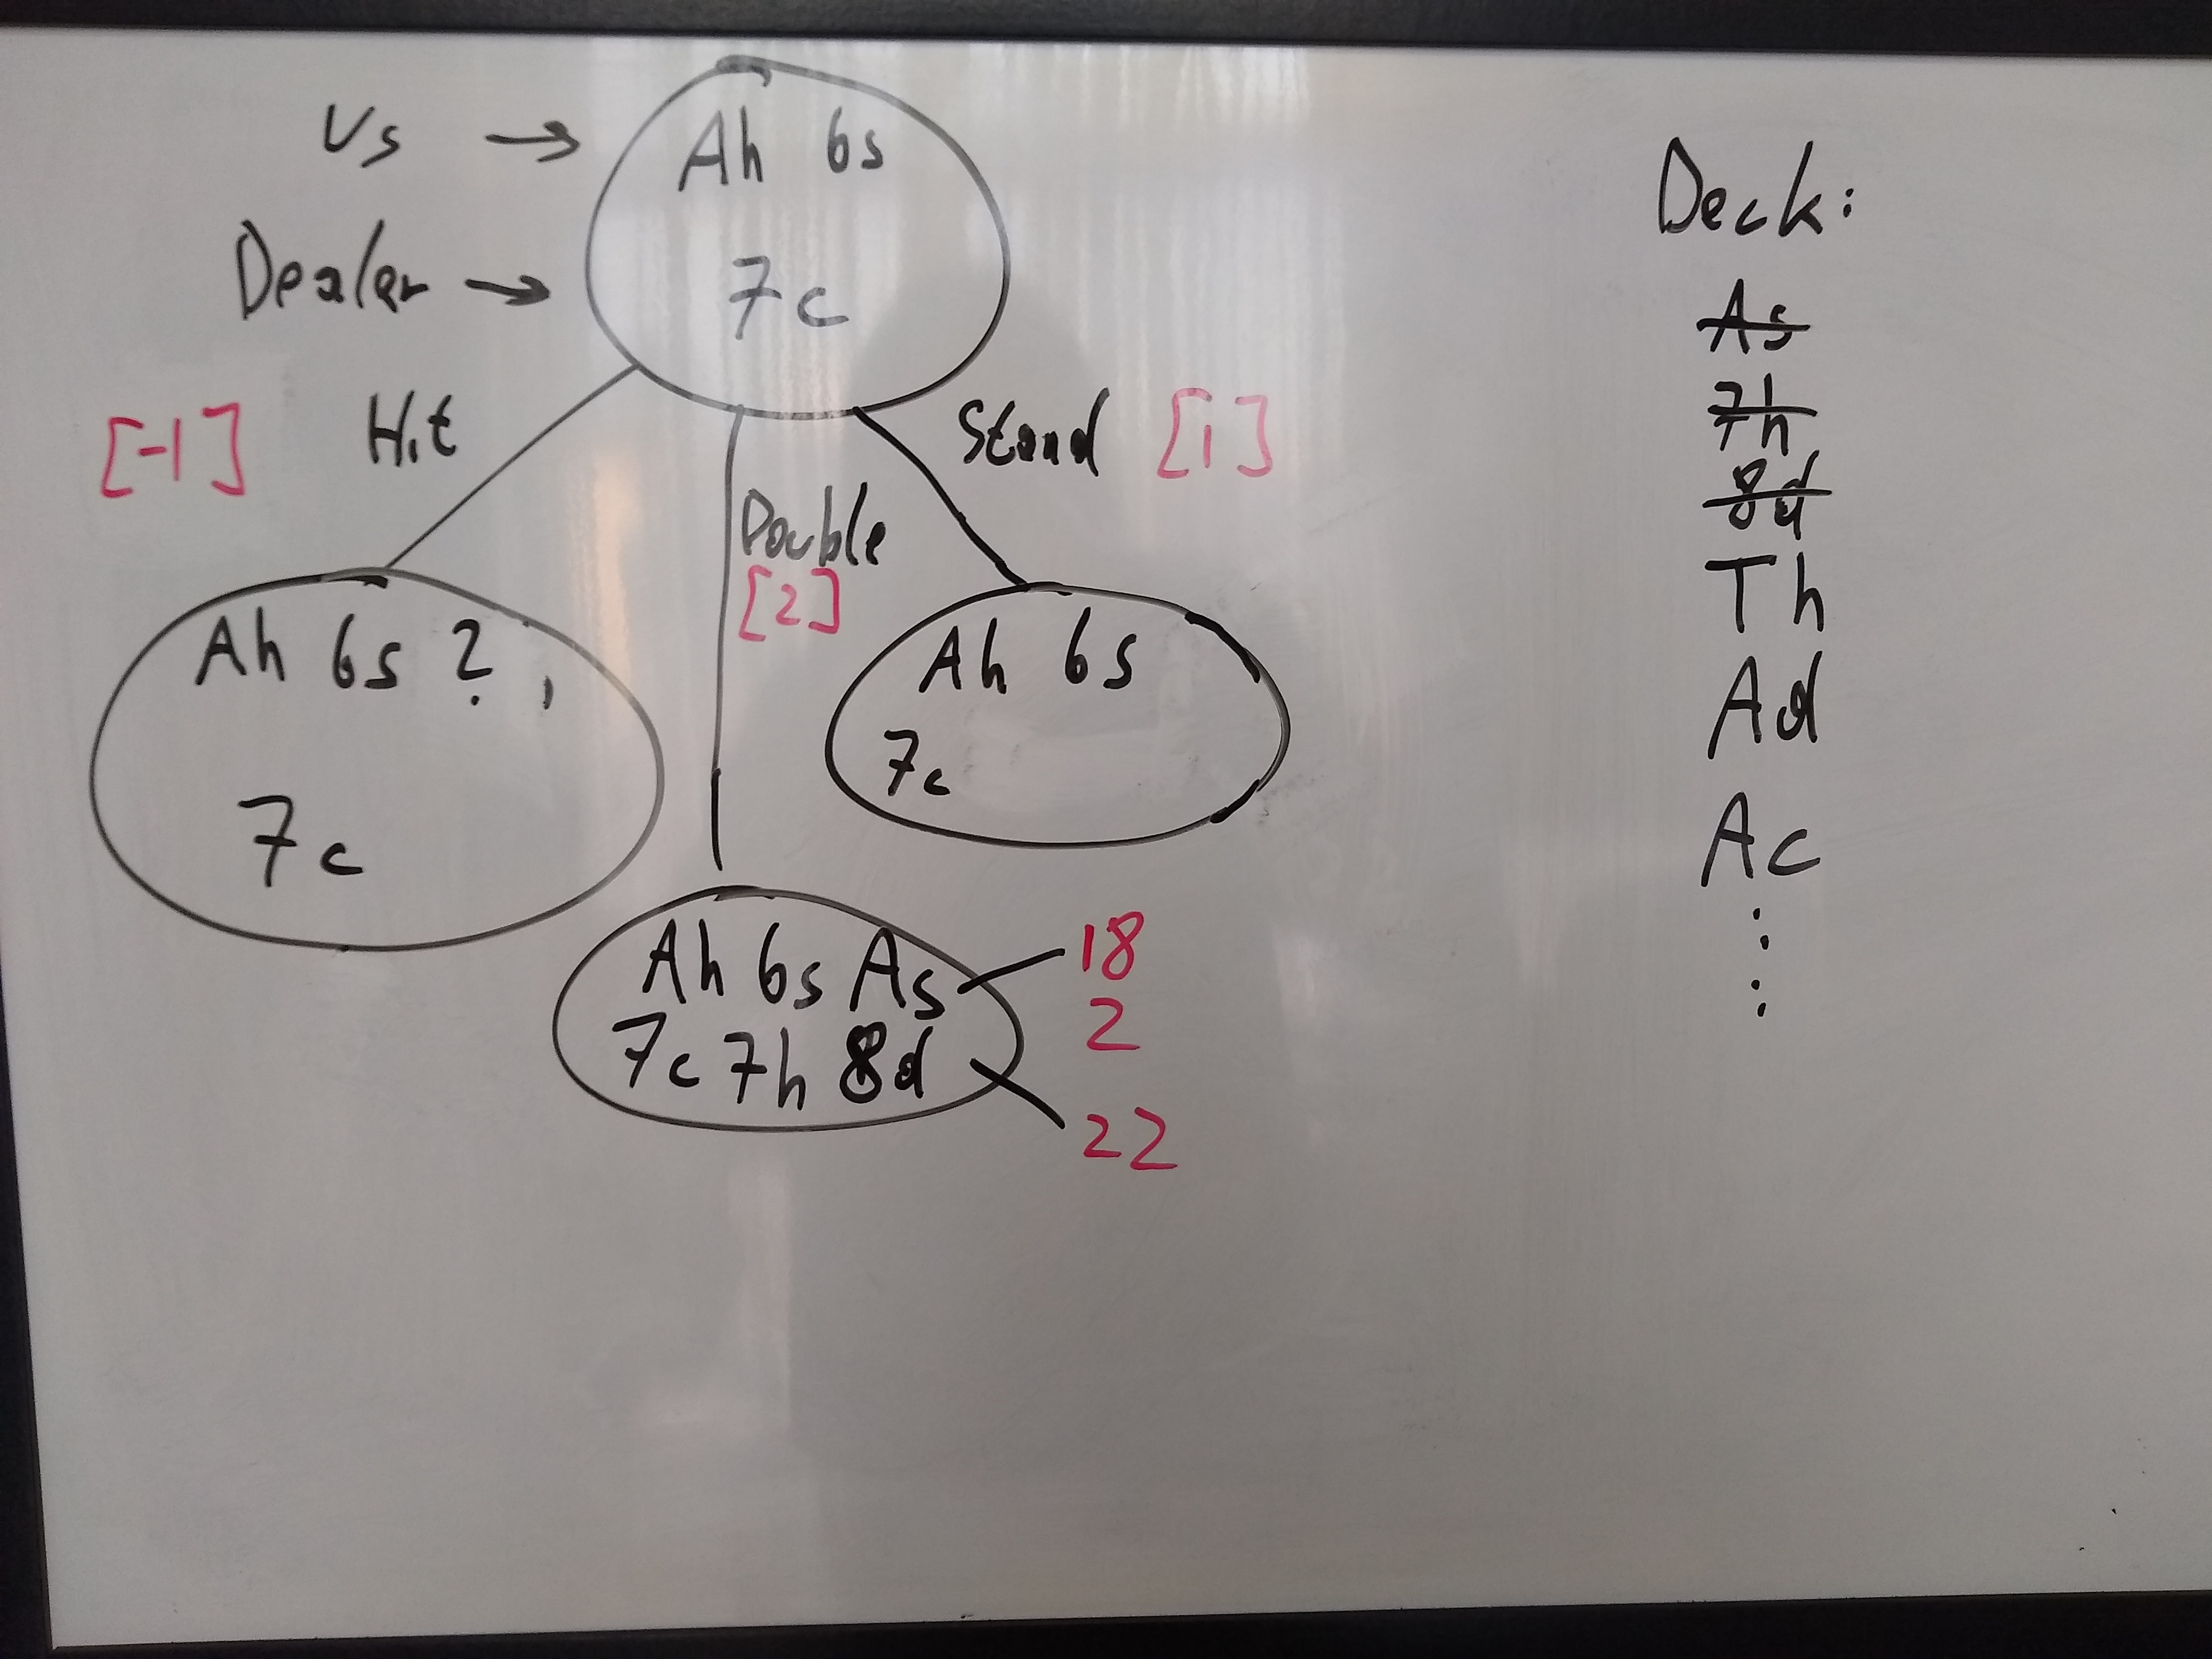 Us → Ah 6s
Dealer → 7c
[-1] Hit
Stand [1]
Double
[2]
Ah 6s ?,
7c
Ah 6s
7c
Ah 6s As
7c 7h 8d
18
2
22
Deck:
As
7h
8d
Th
Ad
Ac